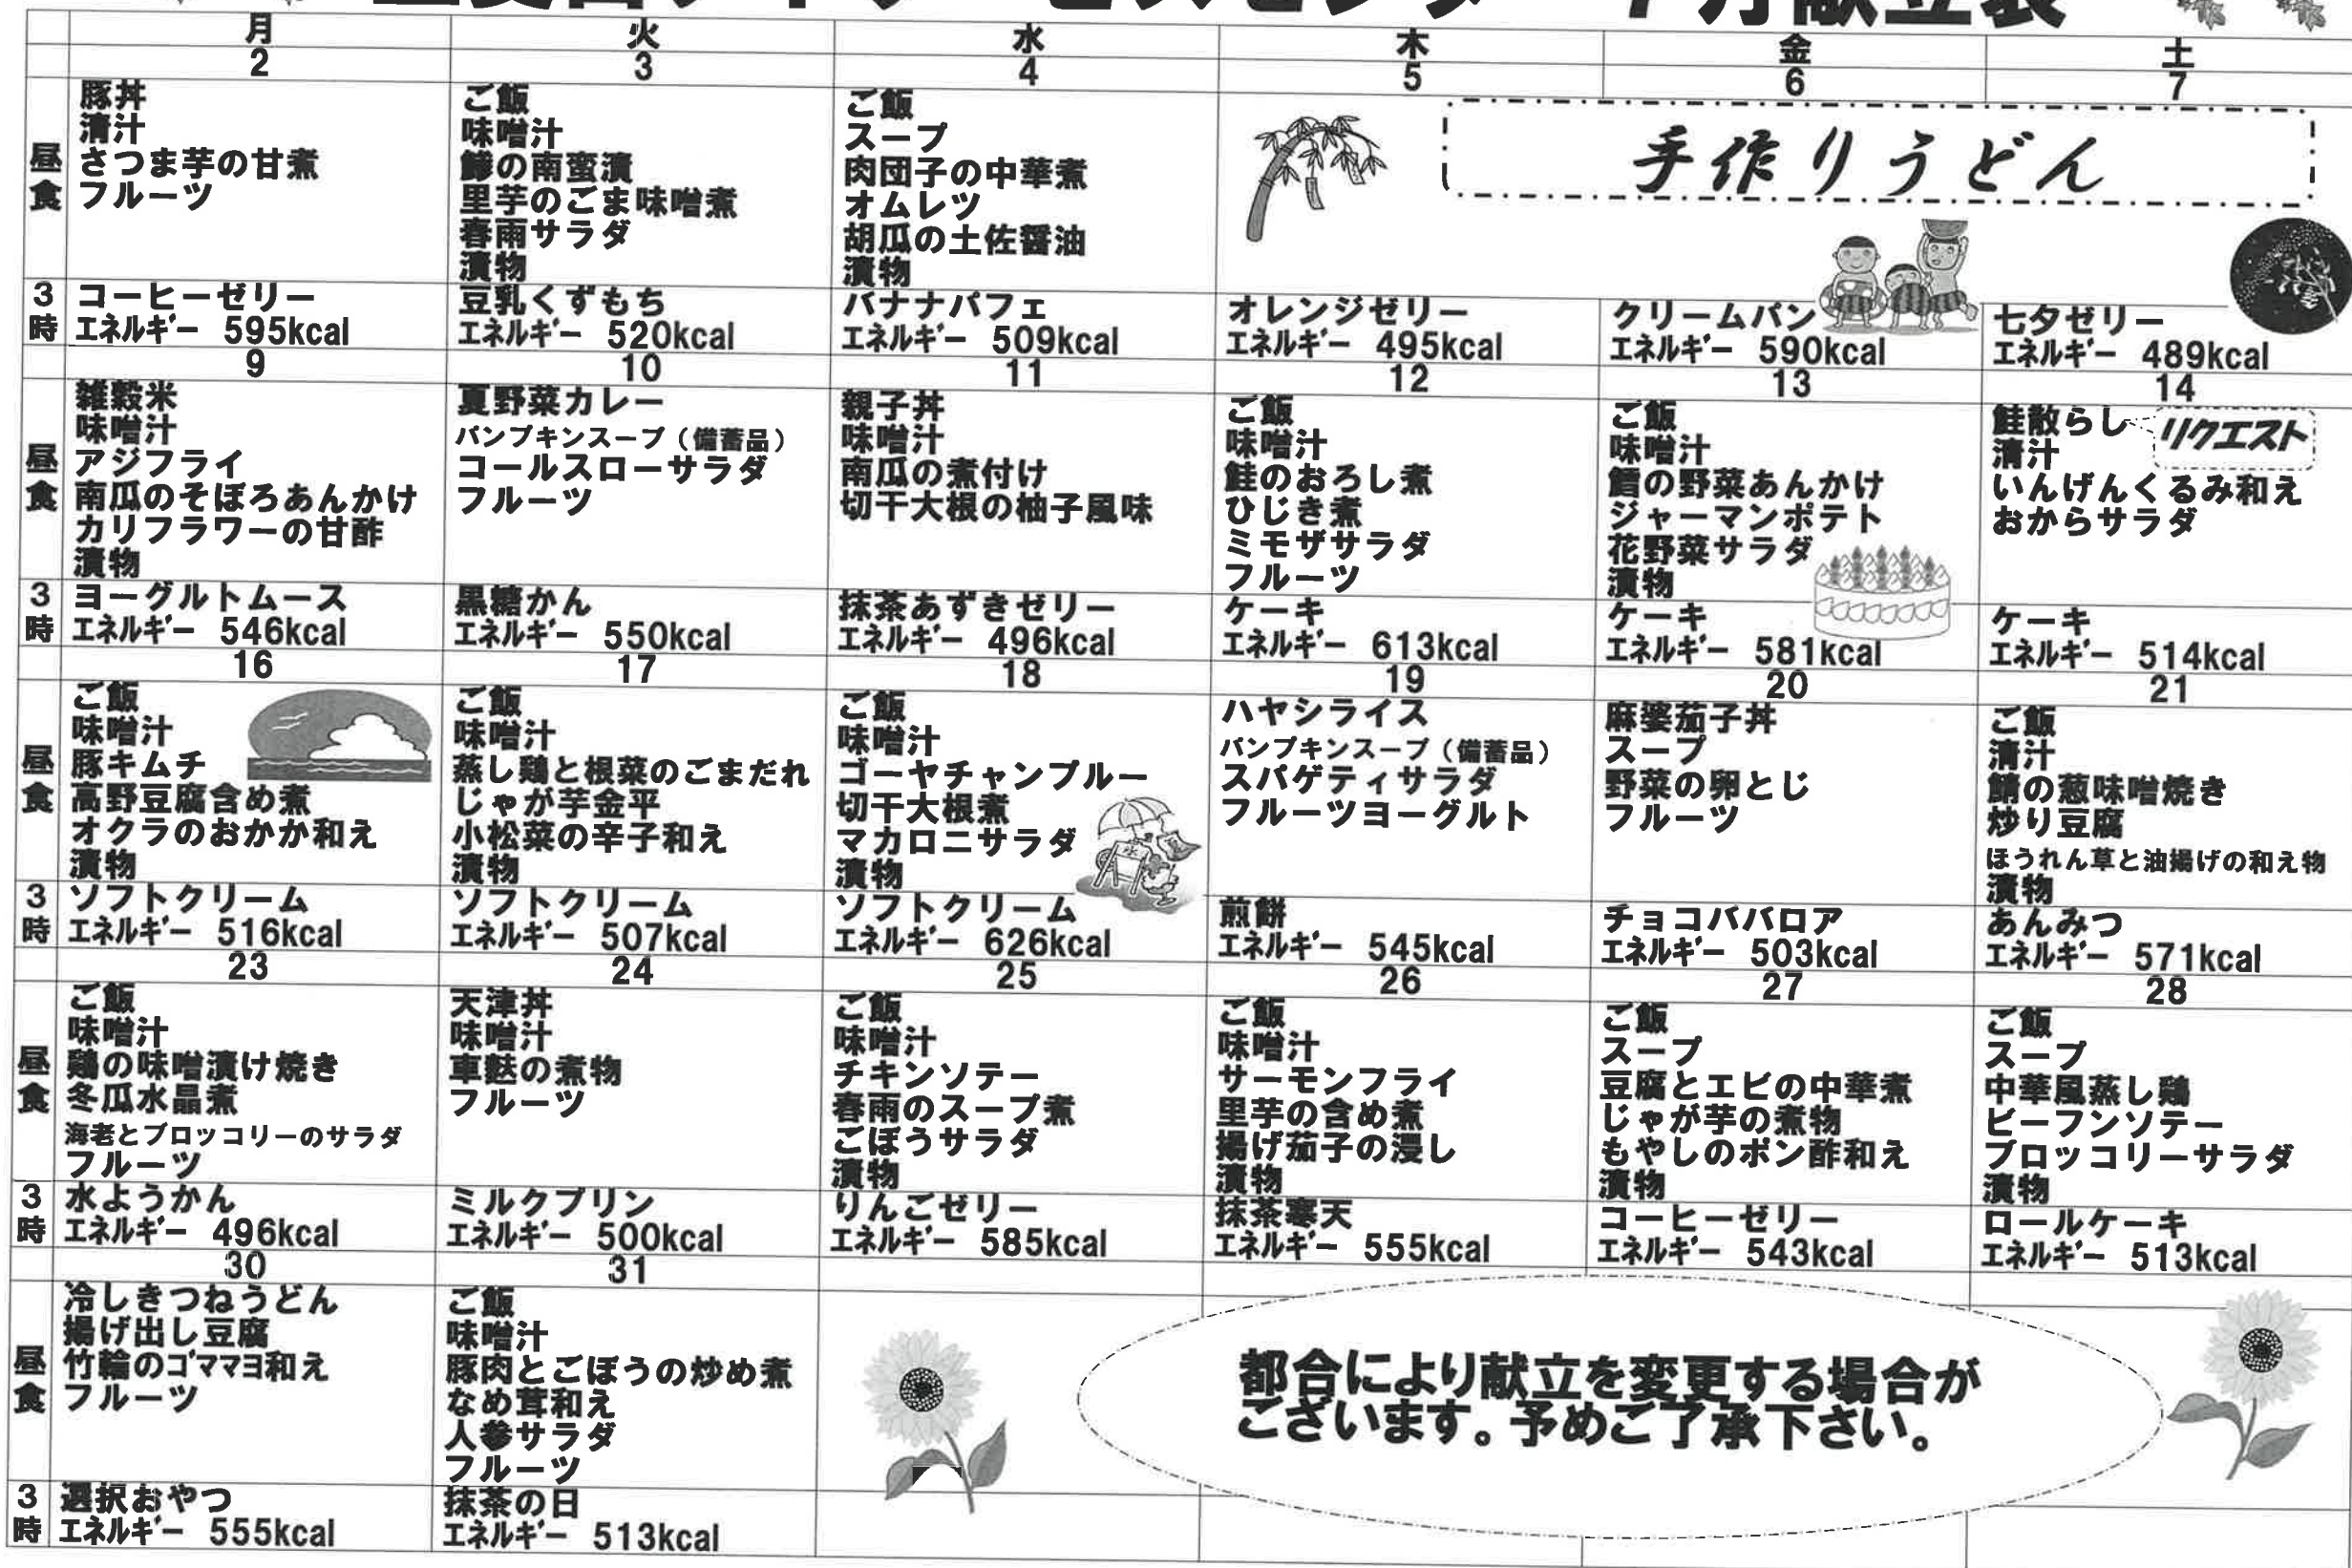 デイサービスセンター 7月献立表
月 火 水 木 金 土
2 3 4 5 6 7
昼食
豚丼
清汁
さつま芋の甘煮
フルーツ
ご飯
味噌汁
鯵の南蛮漬
里芋のごま味噌煮
春雨サラダ
漬物
ご飯
スープ
肉団子の中華煮
オムレツ
胡瓜の土佐醤油
漬物
手作りうどん
3時
コーヒーゼリー
エネルギー 595kcal
豆乳くずもち
エネルギー 520kcal
バナナパフェ
エネルギー 509kcal
オレンジゼリー
エネルギー 495kcal
クリームパン
エネルギー 590kcal
七夕ゼリー
エネルギー 489kcal
9 10 11 12 13 14
昼食
雑穀米
味噌汁
アジフライ
南瓜のそぼろあんかけ
カリフラワーの甘酢
漬物
夏野菜カレー
パンプキンスープ（備蓄品）
コールスローサラダ
フルーツ
親子丼
味噌汁
南瓜の煮付け
切干大根の柚子風味
ご飯
味噌汁
鮭のおろし煮
ひじき煮
ミモザサラダ
フルーツ
ご飯
味噌汁
鱈の野菜あんかけ
ジャーマンポテト
花野菜サラダ
漬物
鮭散らし
リクエスト
清汁
いんげんくるみ和え
おからサラダ
3時
ヨーグルトムース
エネルギー 546kcal
黒糖かん
エネルギー 550kcal
抹茶あずきゼリー
エネルギー 496kcal
ケーキ
エネルギー 613kcal
ケーキ
エネルギー 581kcal
ケーキ
エネルギー 514kcal
16 17 18 19 20 21
昼食
ご飯
味噌汁
豚キムチ
高野豆腐含め煮
オクラのおかか和え
漬物
ご飯
味噌汁
蒸し鶏と根菜のごまだれ
じゃが芋金平
小松菜の辛子和え
漬物
ご飯
味噌汁
ゴーヤチャンプルー
切干大根煮
マカロニサラダ
漬物
氷
ハヤシライス
パンプキンスープ（備蓄品）
スパゲティサラダ
フルーツヨーグルト
麻婆茄子丼
スープ
野菜の卵とじ
フルーツ
ご飯
清汁
鯖の葱味噌焼き
炒り豆腐
ほうれん草と油揚げの和え物
漬物
3時
ソフトクリーム
エネルギー 516kcal
ソフトクリーム
エネルギー 507kcal
ソフトクリーム
エネルギー 626kcal
煎餅
エネルギー 545kcal
チョコババロア
エネルギー 503kcal
あんみつ
エネルギー 571kcal
23 24 25 26 27 28
昼食
ご飯
味噌汁
鶏の味噌漬け焼き
冬瓜水晶煮
海老とブロッコリーのサラダ
フルーツ
天津丼
味噌汁
車麩の煮物
フルーツ
ご飯
味噌汁
チキンソテー
春雨のスープ煮
ごぼうサラダ
漬物
ご飯
味噌汁
サーモンフライ
里芋の含め煮
揚げ茄子の浸し
漬物
ご飯
スープ
豆腐とエビの中華煮
じゃが芋の煮物
もやしのポン酢和え
漬物
ご飯
スープ
中華風蒸し鶏
ビーフンソテー
ブロッコリーサラダ
漬物
3時
水ようかん
エネルギー 496kcal
ミルクプリン
エネルギー 500kcal
りんごゼリー
エネルギー 585kcal
抹茶寒天
エネルギー 555kcal
コーヒーゼリー
エネルギー 543kcal
ロールケーキ
エネルギー 513kcal
30 31
昼食
冷しきつねうどん
揚げ出し豆腐
竹輪のゴママヨ和え
フルーツ
ご飯
味噌汁
豚肉とごぼうの炒め煮
なめ茸和え
人参サラダ
フルーツ
都合により献立を変更する場合が
ございます。予めご了承下さい。
3時
選択おやつ
エネルギー 555kcal
抹茶の日
エネルギー 513kcal